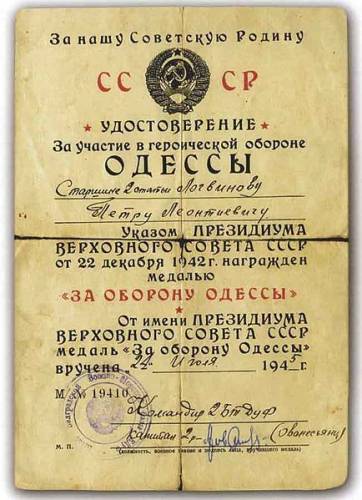 За нашу Советскую Родину
СССР
★ УДОСТОВЕРЕНИЕ ★
За участие в героической обороне
ОДЕССЫ
Старшине 2 статьи Логвинову
Петру Леонтиевичу
Указом ПРЕЗИДИУМА
ВЕРХОВНОГО СОВЕТА СССР
от 22 декабря 1942 г. награжден
медалью
«ЗА ОБОРОНУ ОДЕССЫ»
От имени ПРЕЗИДИУМА
ВЕРХОВНОГО СОВЕТА СССР
медаль «За оборону Одессы»
вручена „24" Июля 1945 г.
М № 19410
Командир 2 бТД
Капитан 2 р.
М. П.
(должность, воинское звание и подпись лица, вручившего медаль)